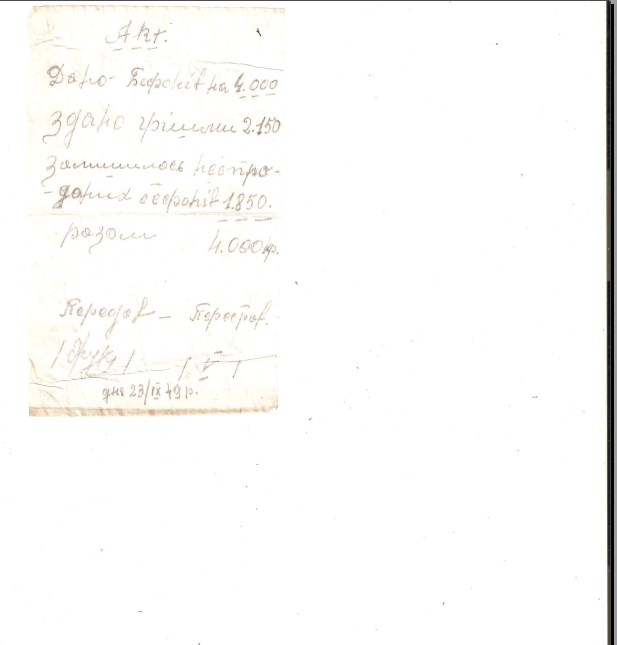 Акт.
Дано Бефонів на 4.000
Здано грішми 2.150
Залишилось неспро-
-даних бефонів 1.850.
разом 4.000 кр.
Передав – Перебрав.
/ / / /
дня 23/IX 49 р.